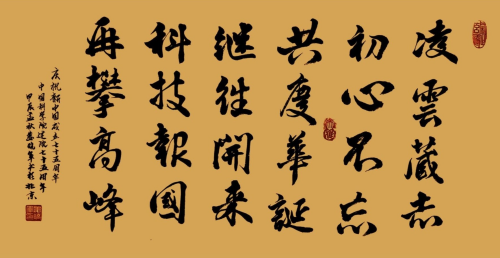 凌雲藏志
初心不忘
共度華誕
继往開来
科技報國
再攀高峰
庆祝新中国成立七十五周年
中国科学院建院七十五周年
甲辰孟秋